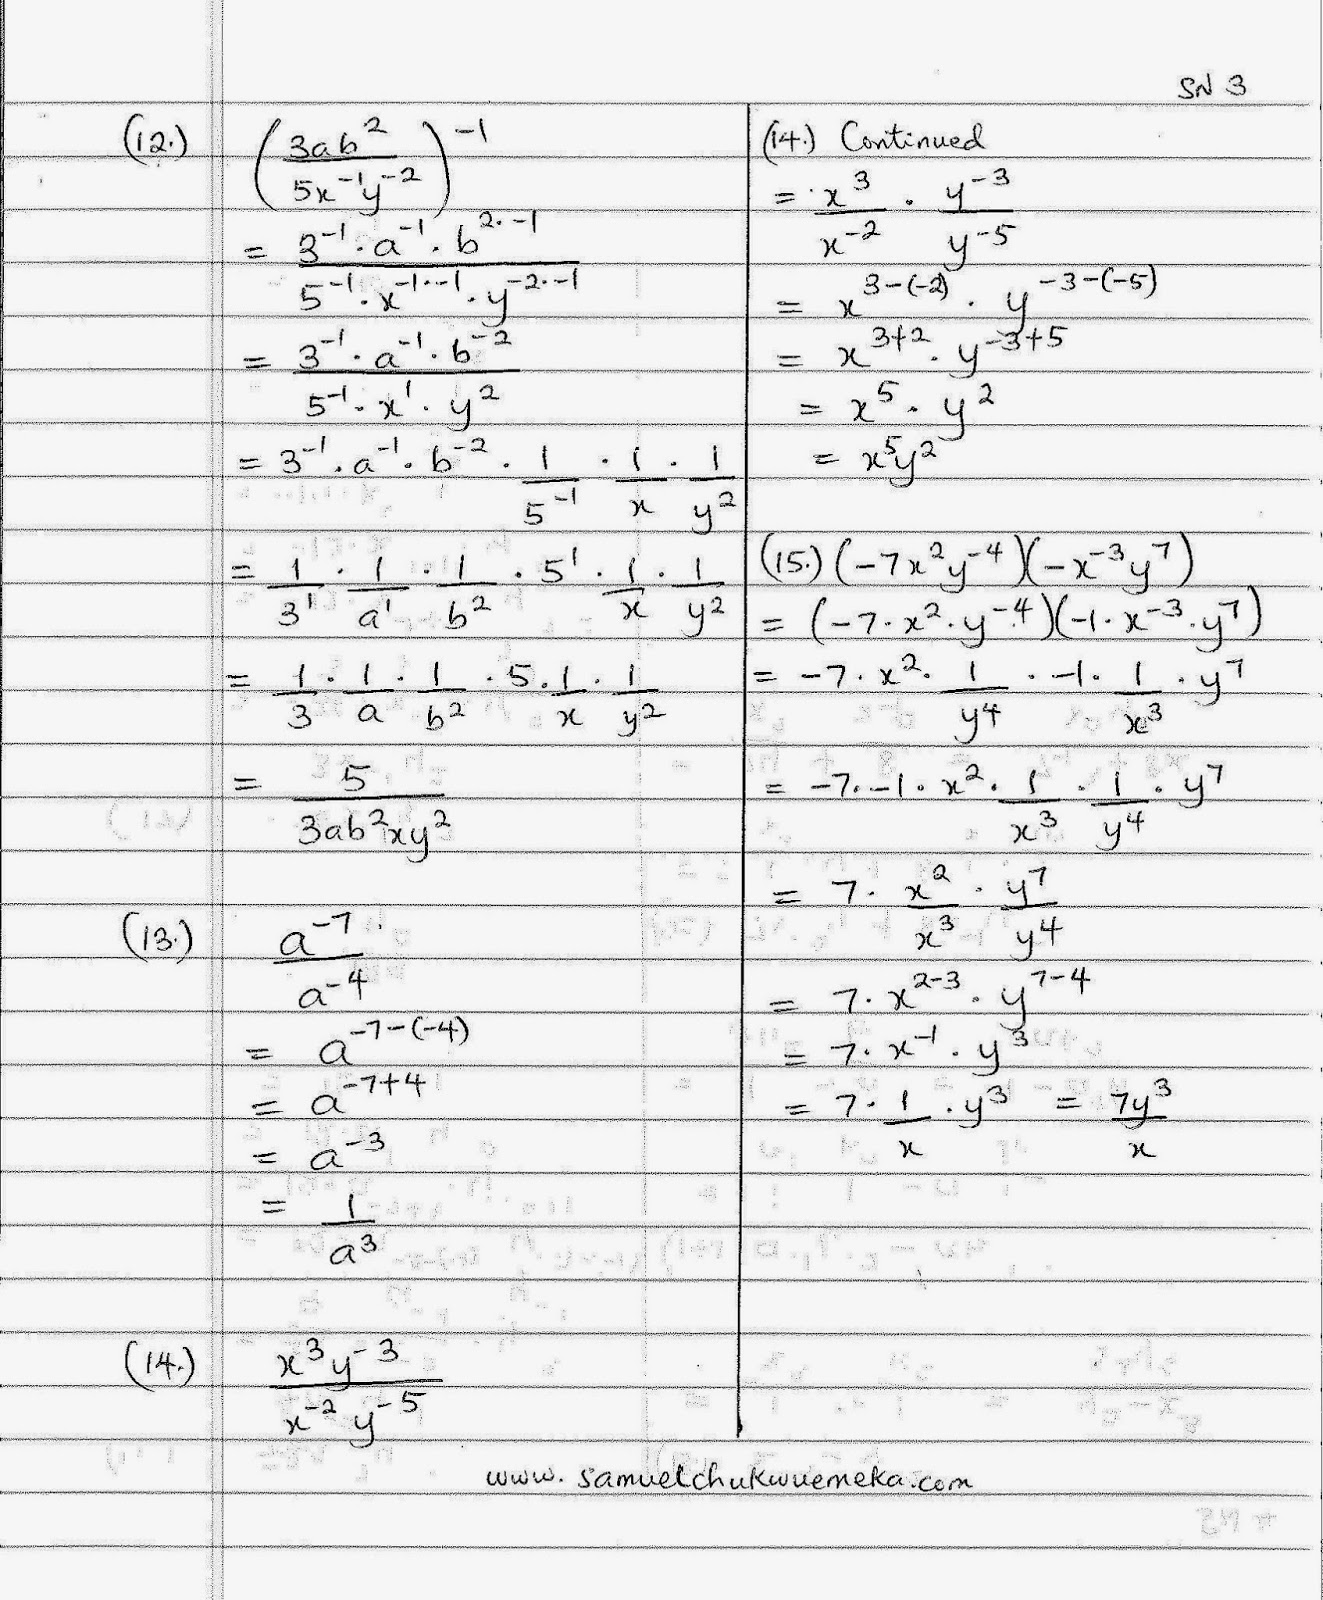 SN 3
(12.) (3ab²/5x⁻¹y⁻²)⁻¹
= 3⁻¹·a⁻¹·b²·⁻¹/5⁻¹·x⁻¹·⁻¹·y⁻²·⁻¹
= 3⁻¹·a⁻¹·b⁻²/5⁻¹·x¹·y²
= 3⁻¹·a⁻¹·b⁻²·1/5⁻¹·1/x·1/y²
= 1/3¹·1/a¹·1/b²·5¹·1/x·1/y²
= 1/3·1/a·1/b²·5·1/x·1/y²
= 5/3ab²xy²
(13.) a⁻⁷/a⁻⁴
= a⁻⁷⁻⁽⁻⁴⁾
= a⁻⁷⁺⁴
= a⁻³
= 1/a³
(14.) x³y⁻³/x⁻²y⁻⁵
(14.) Continued
= x³/x⁻²·y⁻³/y⁻⁵
= x³⁻⁽⁻²⁾·y⁻³⁻⁽⁻⁵⁾
= x³⁺²·y⁻³⁺⁵
= x⁵·y²
= x⁵y²
(15.) (-7x²y⁻⁴)(-x⁻³y⁷)
= (-7·x²·y⁻⁴)(-1·x⁻³·y⁷)
= -7·x²·1/y⁴·-1·1/x³·y⁷
= -7·-1·x²·1/x³·1/y⁴·y⁷
= 7·x²/x³·y⁷/y⁴
= 7·x²⁻³·y⁷⁻⁴
= 7·x⁻¹·y³
= 7·1/x·y³ = 7y³/x
www.samuelchukwuemeka.com